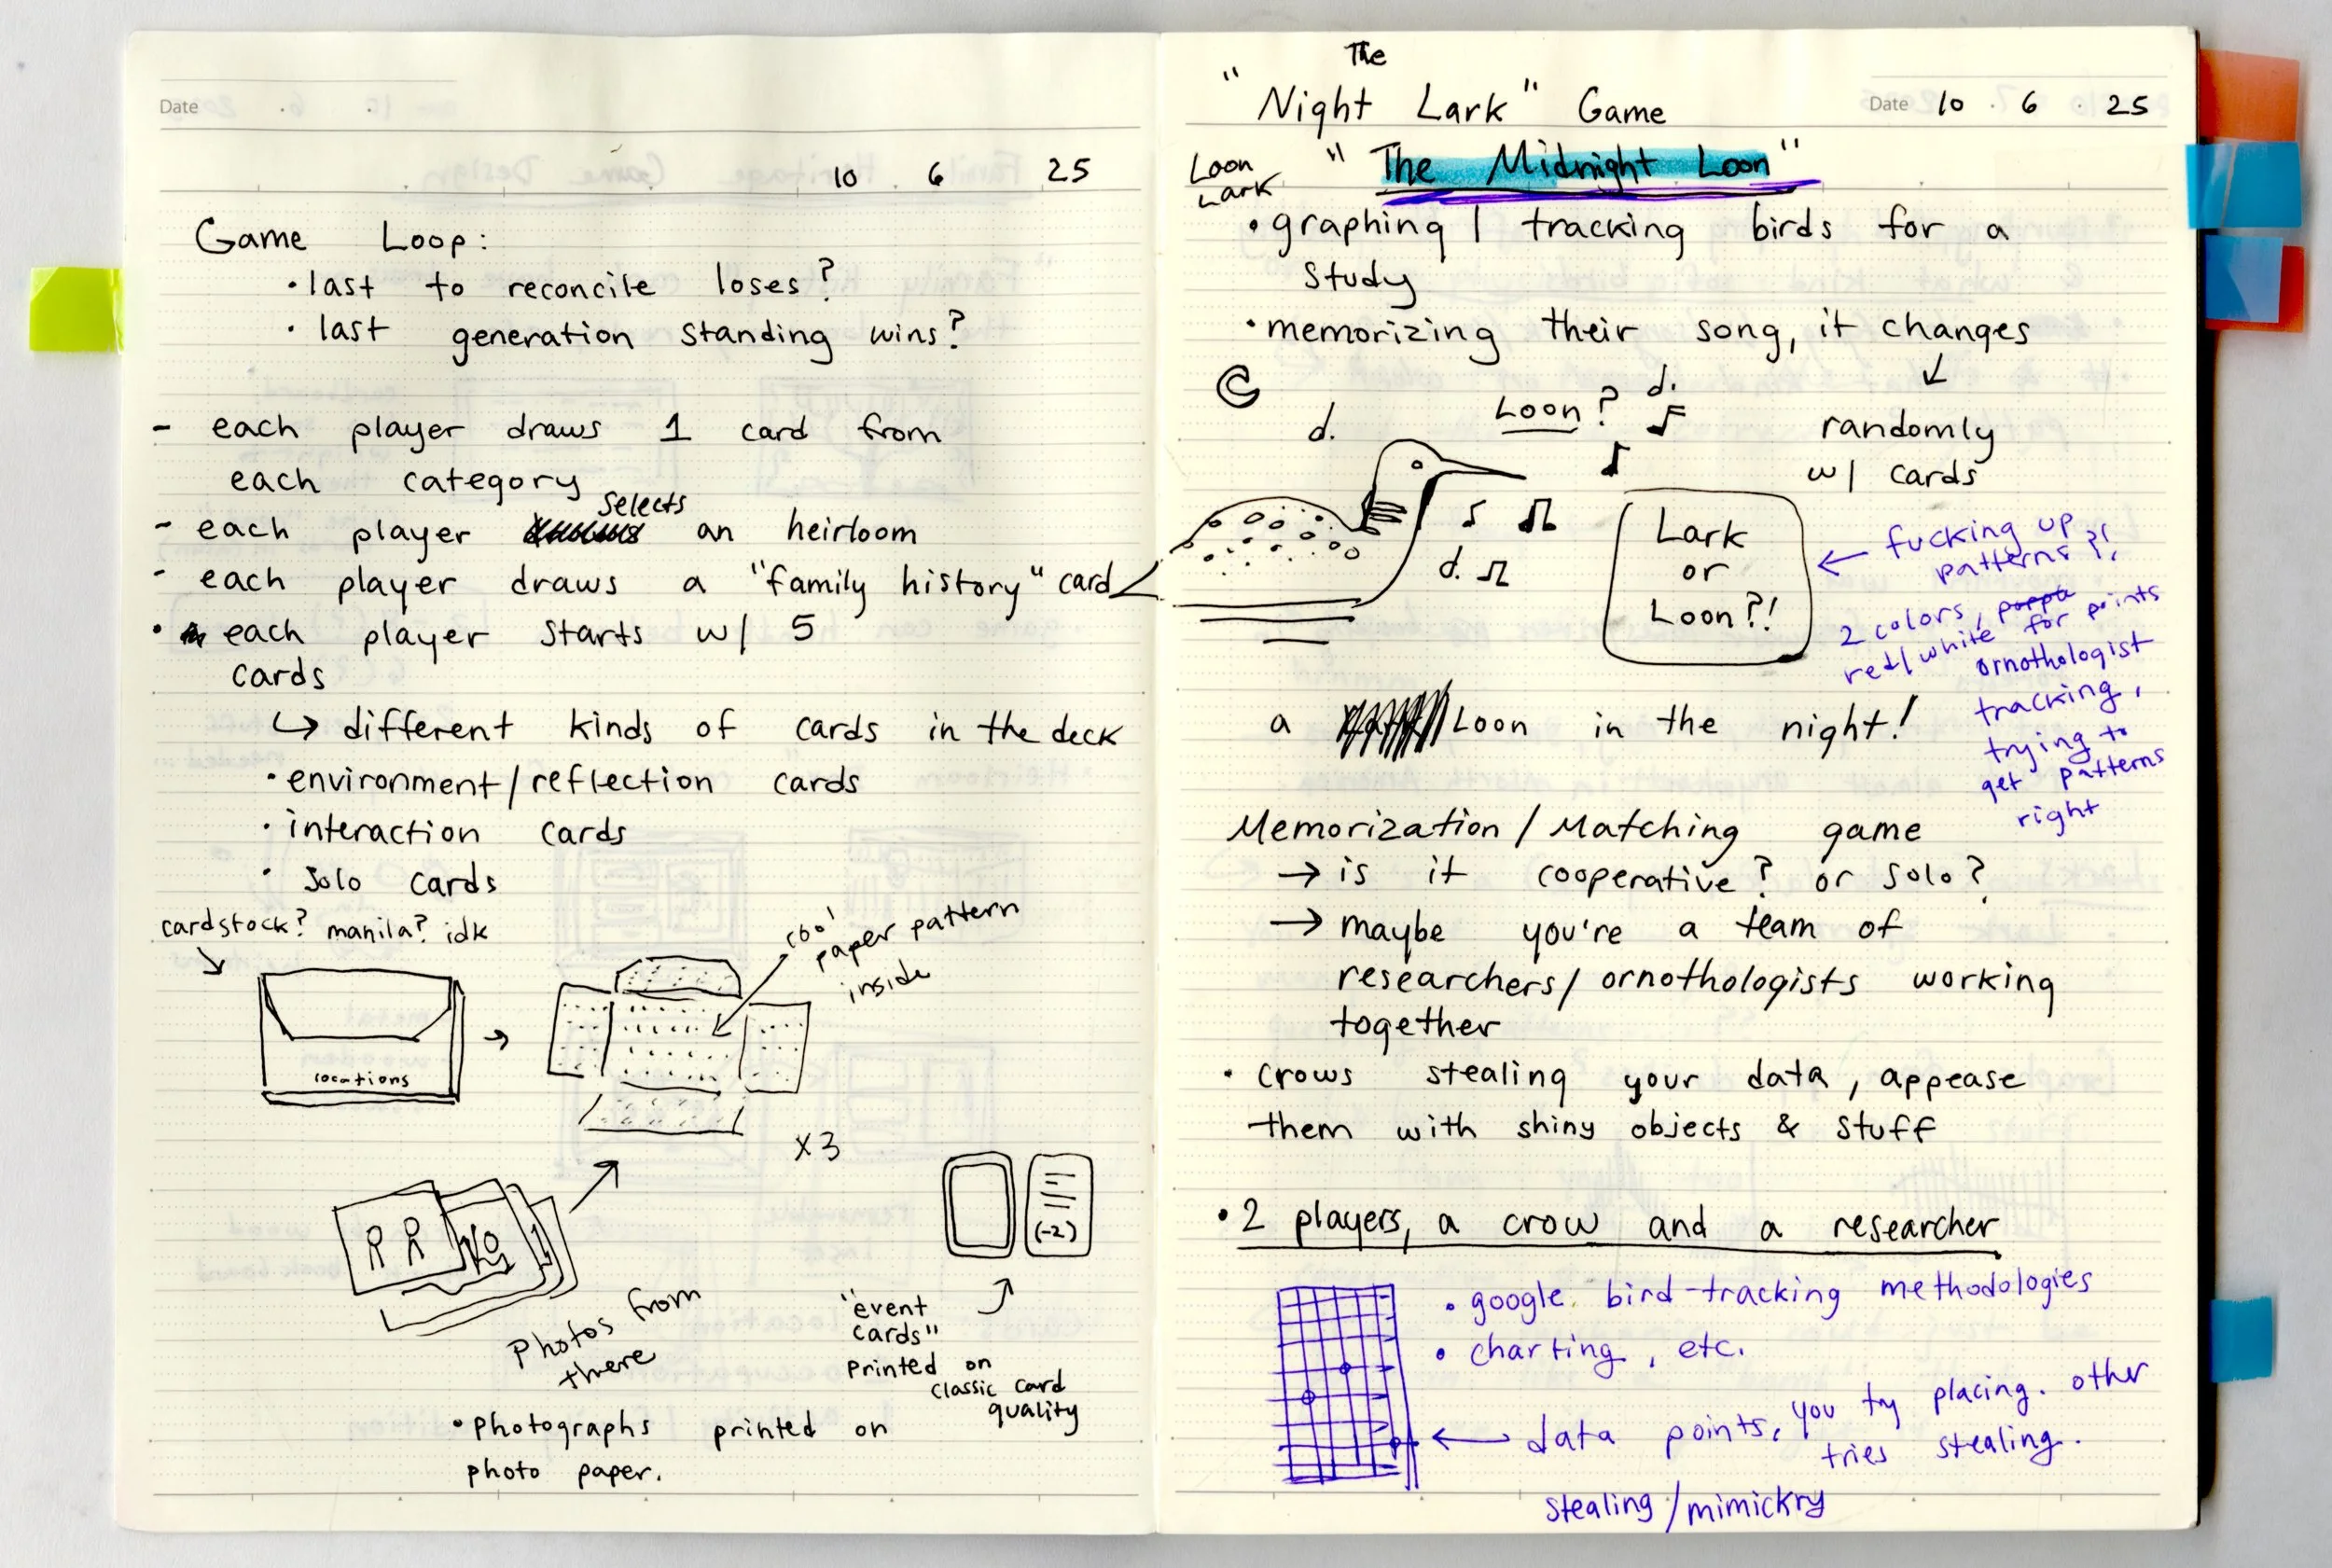 Date
10 6 25
Game Loop:
• last to reconcile loses?
• last generation standing wins?
- each player draws 1 card from
each category
selects
- each player an heirloom
- each player draws a "family history" card
• each player starts w/ 5
cards
↳ different kinds of cards in the deck
• environment/reflection cards
• interaction cards
• solo cards
cardstock? manila? idk
cool
paper pattern
inside
locations
x3
(-2)
photos from
there
"event
cards"
printed on
classic card
quality
• photographs printed on
photo paper.
The
"Night Lark" Game
Date 10 6 25
Loon
Lark
"The Midnight Loon"
• graphing / tracking birds for a
study
• memorizing their song, it changes
randomly
w/ cards
Loon?
Lark
or
Loon?!
← fucking up
patterns?!
2 colors,
red/white for points
ornothologist
tracking,
trying to
get patterns
right
a Loon in the night!
Memorization/Matching game
→ is it cooperative? or solo?
→ maybe you're a team of
researchers/ornothologists working
together
• crows stealing your data, appease
them with shiny objects & stuff
• 2 players, a crow and a researcher
• google bird-tracking methodologies
• charting, etc.
← data points, you try placing. other
tries stealing.
stealing/mimickry